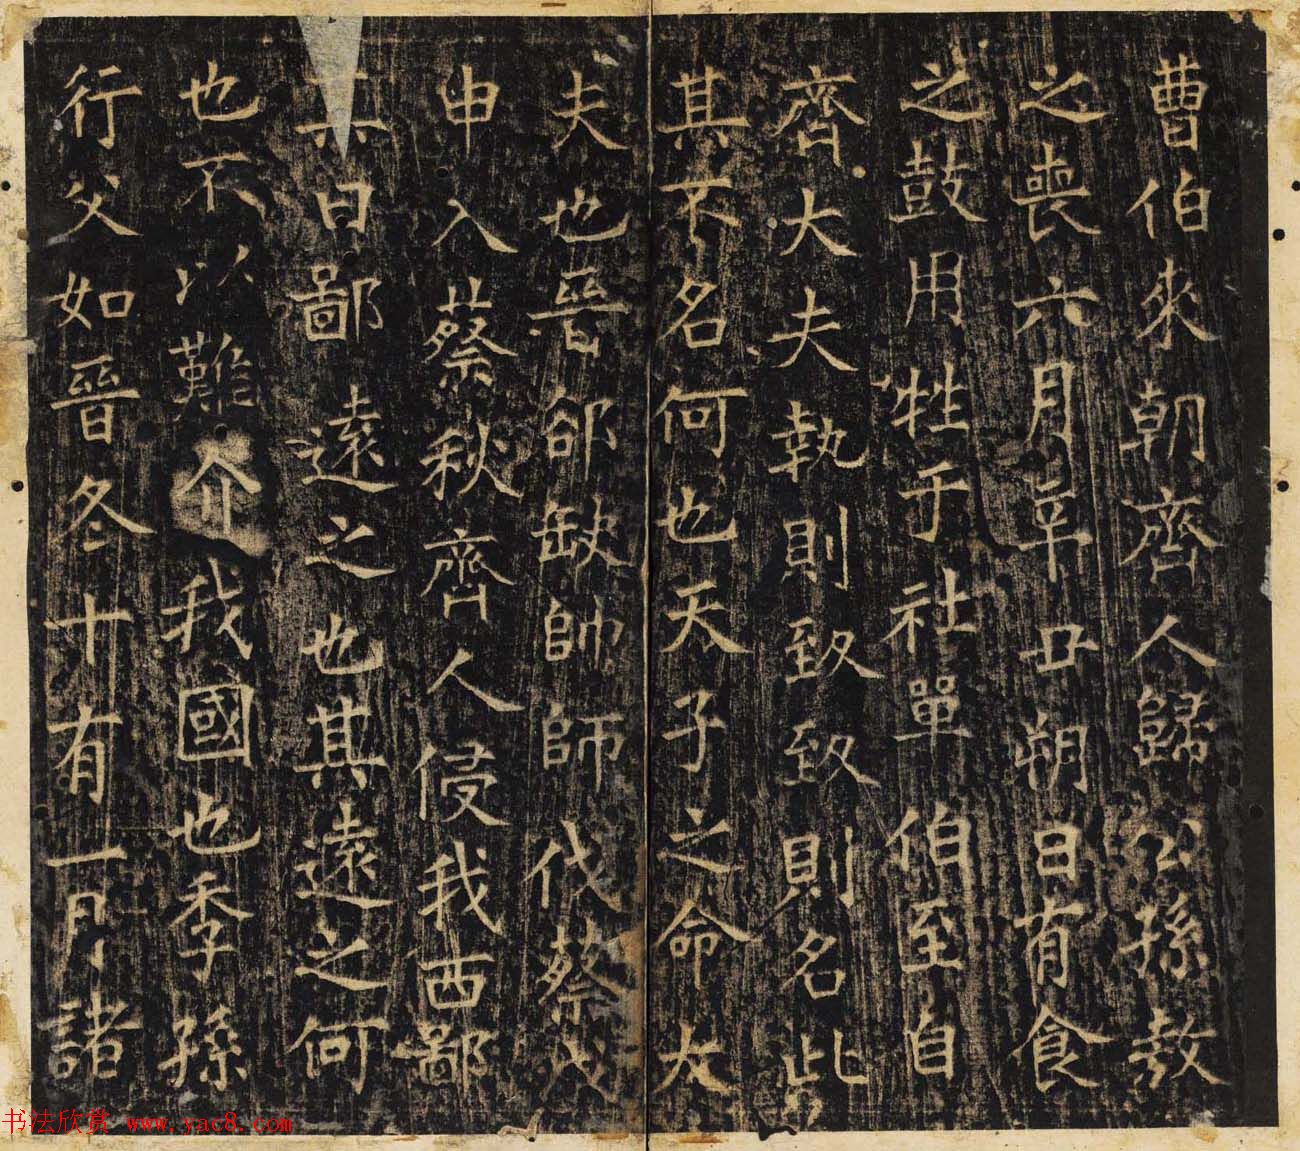 曹伯來朝齊人歸公孫敖
之喪六月辛丑朔日有食
之鼓用牲于社單伯至自
齊大夫執則致致則名此
其不名何也天子之命大
夫也晉郤缺帥師伐蔡戊
申入蔡秋齊人侵我西鄙
其曰鄙遠之也其遠之何
也不以難介我國也季孫
行父如晉冬十有一月諸
书法欣赏 www.yac8.com